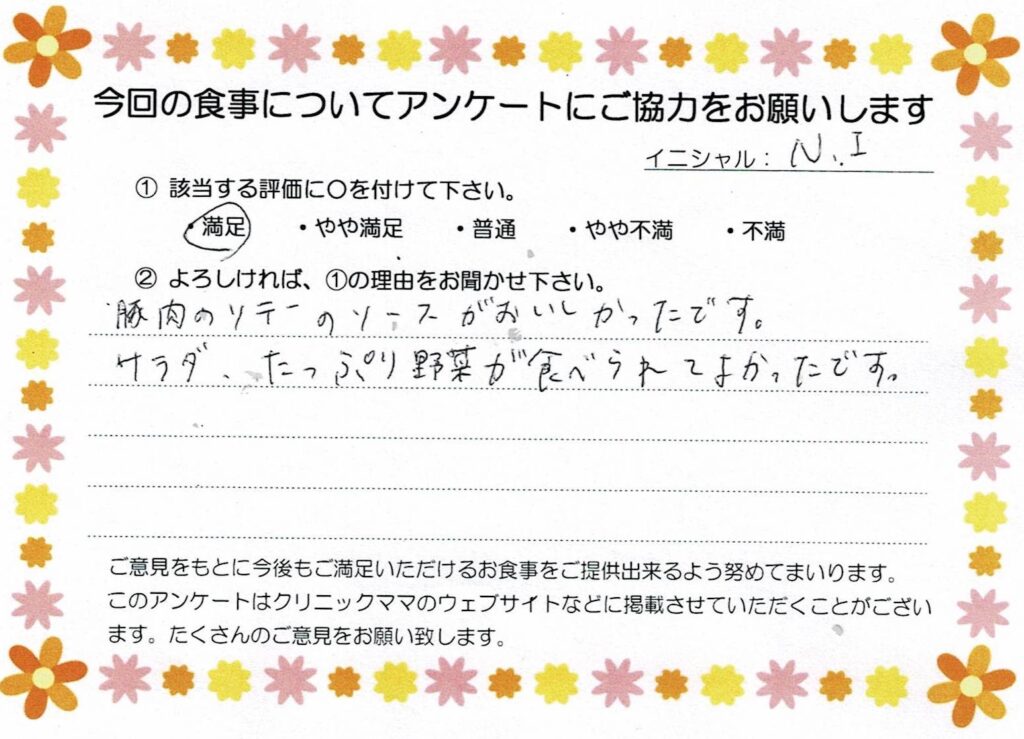 今回の食事についてアンケートにご協力をお願いします
イニシャル： N.I
① 該当する評価に〇を付けて下さい。
・満足 ・やや満足 ・普通 ・やや不満 ・不満
② よろしければ、①の理由をお聞かせ下さい。
豚肉のソテーのソースがおいしかったです。
サラダ、たっぷり野菜が食べられてよかったです。
ご意見をもとに今後もご満足いただけるお食事をご提供出来るよう努めてまいります。
このアンケートはクリニックママのウェブサイトなどに掲載させていただくことがござい
ます。たくさんのご意見をお願い致します。